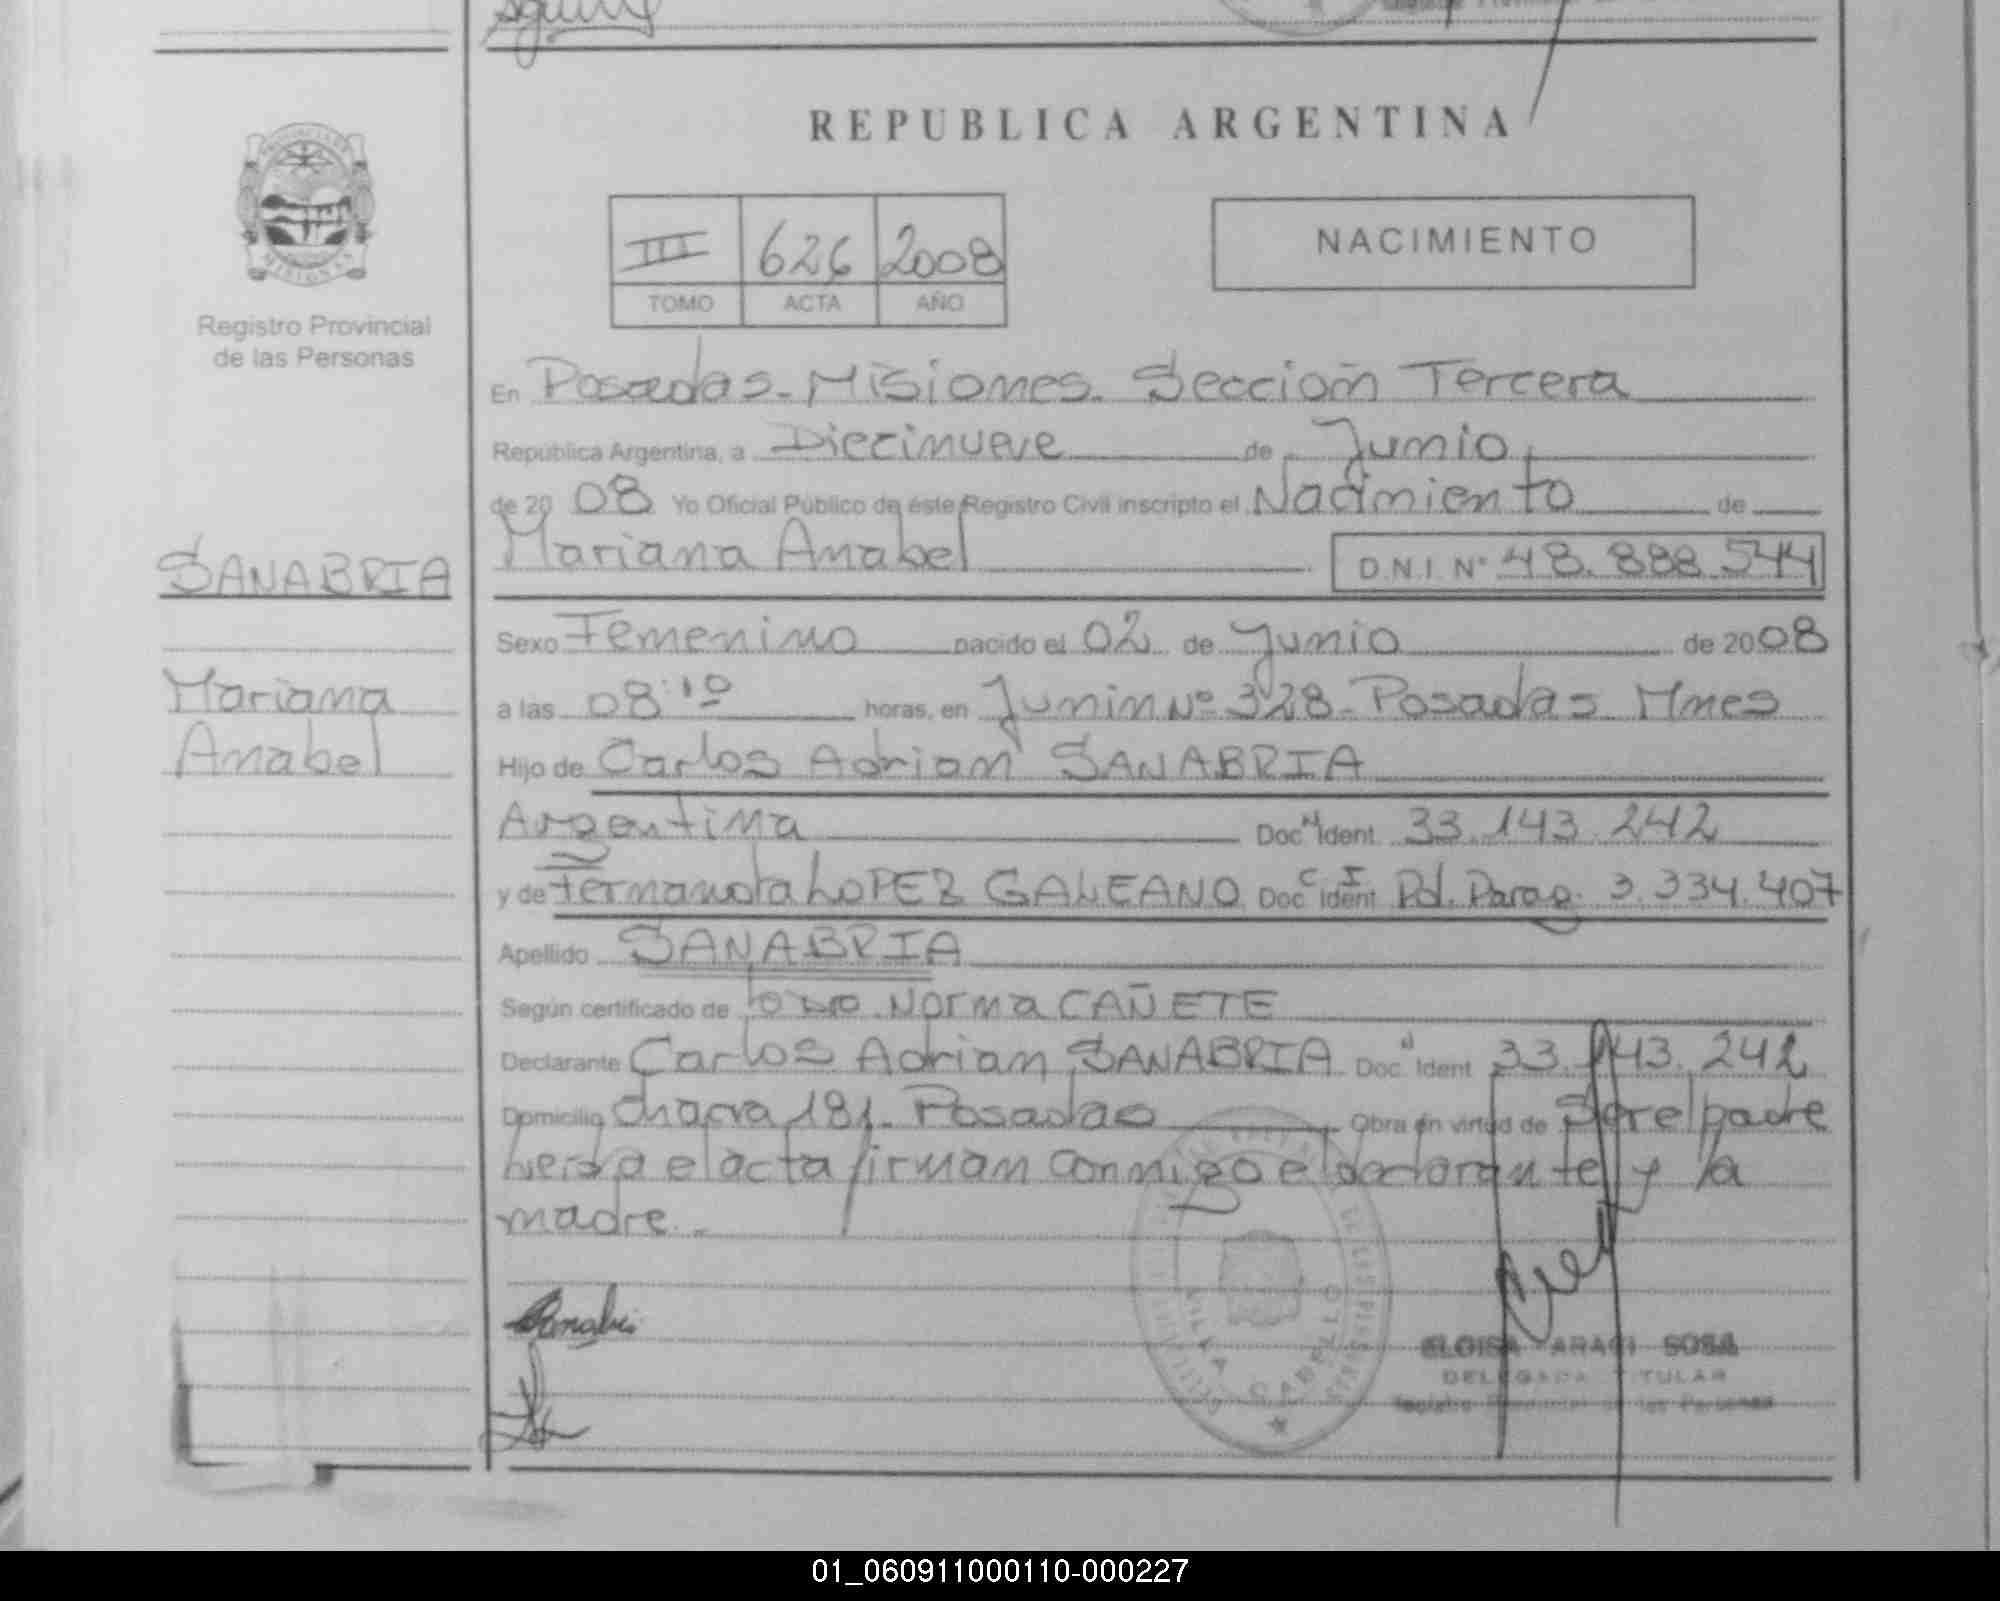 REPUBLICA ARGENTINA
PROVINCIA DE MISIONES
Registro Provincial
de las Personas
III 626 2008
TOMO ACTA AÑO
NACIMIENTO
SANABRIA
Mariana
Anabel
En Posadas - Misiones. Sección Tercera
República Argentina, a Diecinueve de Junio
de 2008 Yo Oficial Público de éste Registro Civil inscripto el Nacimiento de
Mariana Anabel D.N.I. N° 48.888.544
Sexo Femenino nacido el 02 de Junio de 2008
a las 08:10 horas, en Junin Nº 328 - Posadas Mnes
Hijo de Carlos Adrian SANABRIA
Argentina Doc N Ident. 33.143.242
y de Fernanda LOPEZ GALEANO Doc C Ident I Pol. Parag. 3.334.407
Apellido SANABRIA
Según certificado de Norma CAÑETE
Declarante Carlos Adrian SANABRIA Doc N Ident 33.143.242
Domicilio Chacra 181 - Posadas Obra en virtud de Ser el padre
leida el acta firman conmigo el declarante y la
madre.-
VILLA CABELLO
ELOISA ARACI SOSA
DELEGADA TITULAR
Registro Provincial de las Personas
01_060911000110-000227